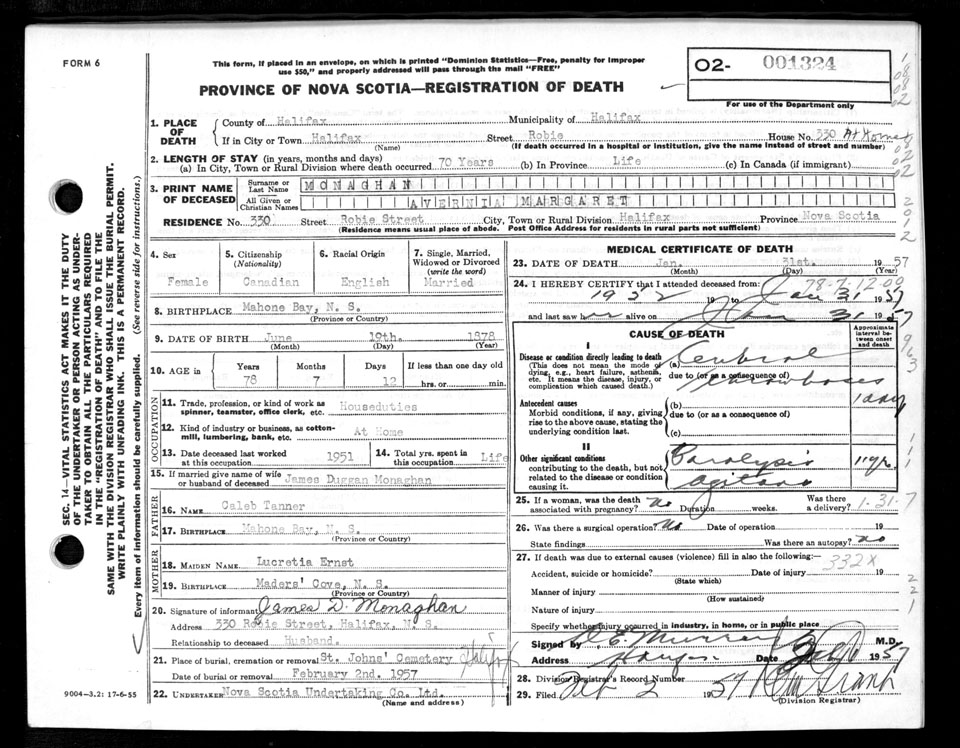 FORM 6
This form, if placed in an envelope, on which is printed "Dominion Statistics—Free, penalty for improper
use $50," and properly addressed will pass through the mail "FREE"
O2- 001324
For use of the Department only
PROVINCE OF NOVA SCOTIA—REGISTRATION OF DEATH
SEC. 14—VITAL STATISTICS ACT MAKES IT THE DUTY
OF THE UNDERTAKER OR PERSON ACTING AS UNDER-
TAKER TO OBTAIN ALL THE PARTICULARS REQUIRED
IN THE "REGISTRATION OF DEATH" AND TO FILE THE
SAME WITH THE DIVISION REGISTRAR WHO SHALL ISSUE THE BURIAL PERMIT.
WRITE PLAINLY WITH UNFADING INK. THIS IS A PERMANENT RECORD.
Every item of information should be carefully supplied. (See reverse side for instructions.)
1. PLACE OF DEATH
County of Halifax Municipality of Halifax
If in City or Town Halifax Street Robie House No. 330 At Home
(Name) (If death occurred in a hospital or institution, give the name instead of street and number)
2. LENGTH OF STAY (in years, months and days)
(a) In City, Town or Rural Division where death occurred 70 Years (b) In Province Life (c) In Canada (if immigrant)
3. PRINT NAME OF DECEASED
Surname or Last Name MONAGHAN
All Given or Christian Names AVERNIA MARGARET
RESIDENCE No. 330 Street Robie Street City, Town or Rural Division Halifax Province Nova Scotia
(Residence means usual place of abode. Post Office Address for residents in rural parts not sufficient)
4. Sex
Female
5. Citizenship (Nationality)
Canadian
6. Racial Origin
English
7. Single, Married, Widowed or Divorced (write the word)
Married
8. BIRTHPLACE Mahone Bay, N. S.
(Province or Country)
9. DATE OF BIRTH June 19th. 1878
(Month) (Day) (Year)
10. AGE in Years Months Days If less than one day old
78 7 12 hrs. or min.
OCCUPATION
11. Trade, profession, or kind of work as spinner, teamster, office clerk, etc. Houseduties
12. Kind of industry or business, as cotton-mill, lumbering, bank, etc. At Home
13. Date deceased last worked at this occupation 1951
14. Total yrs. spent in this occupation Life
15. If married give name of wife or husband of deceased James Duggan Monaghan
FATHER
16. NAME Caleb Tanner
17. BIRTHPLACE Mahone Bay, N. S.
(Province or Country)
MOTHER
18. MAIDEN NAME Lucretia Ernst
19. BIRTHPLACE Maders' Cove, N. S.
(Province or Country)
20. Signature of informant James D. Monaghan
Address 330 Robie Street, Halifax, N. S.
Relationship to deceased Husband.
21. Place of burial, cremation or removal St. Johns' Cemetery Halifax
Date of burial, cremation or removal February 2nd. 1957
22. UNDERTAKER Nova Scotia Undertaking Co. Ltd.
(Name and address)
9004—3.2: 17-6-55
MEDICAL CERTIFICATE OF DEATH
23. DATE OF DEATH Jan. 31st. 1957
(Month) (Day) (Year)
24. I HEREBY CERTIFY that I attended deceased from: 78-7-12-09
1952 19 to Jan 31 1957
and last saw her alive on Jan 31 1957
CAUSE OF DEATH
Approximate interval between onset and death
I
Disease or condition directly leading to death
(This does not mean the mode of dying, e.g., heart failure, asthenia, etc. It means the disease, injury, or complication which caused death.)
(a) Cerebral
due to (or as a consequence of) Thrombosis
1 day
Antecedent causes
Morbid conditions, if any, giving rise to the above cause, stating the underlying condition last.
(b)
due to (or as a consequence of)
(c)
II
Other significant conditions
contributing to the death, but not related to the disease or condition causing it.
Paralysis Agitans
11 yr.
25. If a woman, was the death associated with pregnancy? No Duration weeks. Was there a delivery? 1-31-7
26. Was there a surgical operation? No Date of operation 19
State findings Was there an autopsy? No
27. If death was due to external causes (violence) fill in also the following:—
332X
Accident, suicide or homicide? Date of injury 19
(State which)
Manner of injury
(How sustained)
Nature of injury
Specify whether injury occurred in industry, in home, or in public place
Signed by D E Murray M.D.
Address Date 1957
28. Division Registrar's Record Number
29. Filed Feb 2 1957
(Division Registrar)